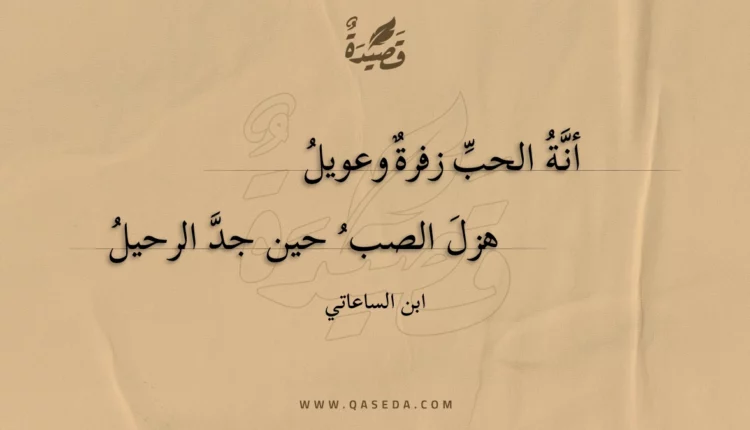 قَصِيْدَةٌ
أنَّةُ الحبِّ زفرةٌ وعويلُ
هزلَ الصب ُ حين جدَّ الرحيلُ
ابن الساعاتي
WWW.QASEDA.COM